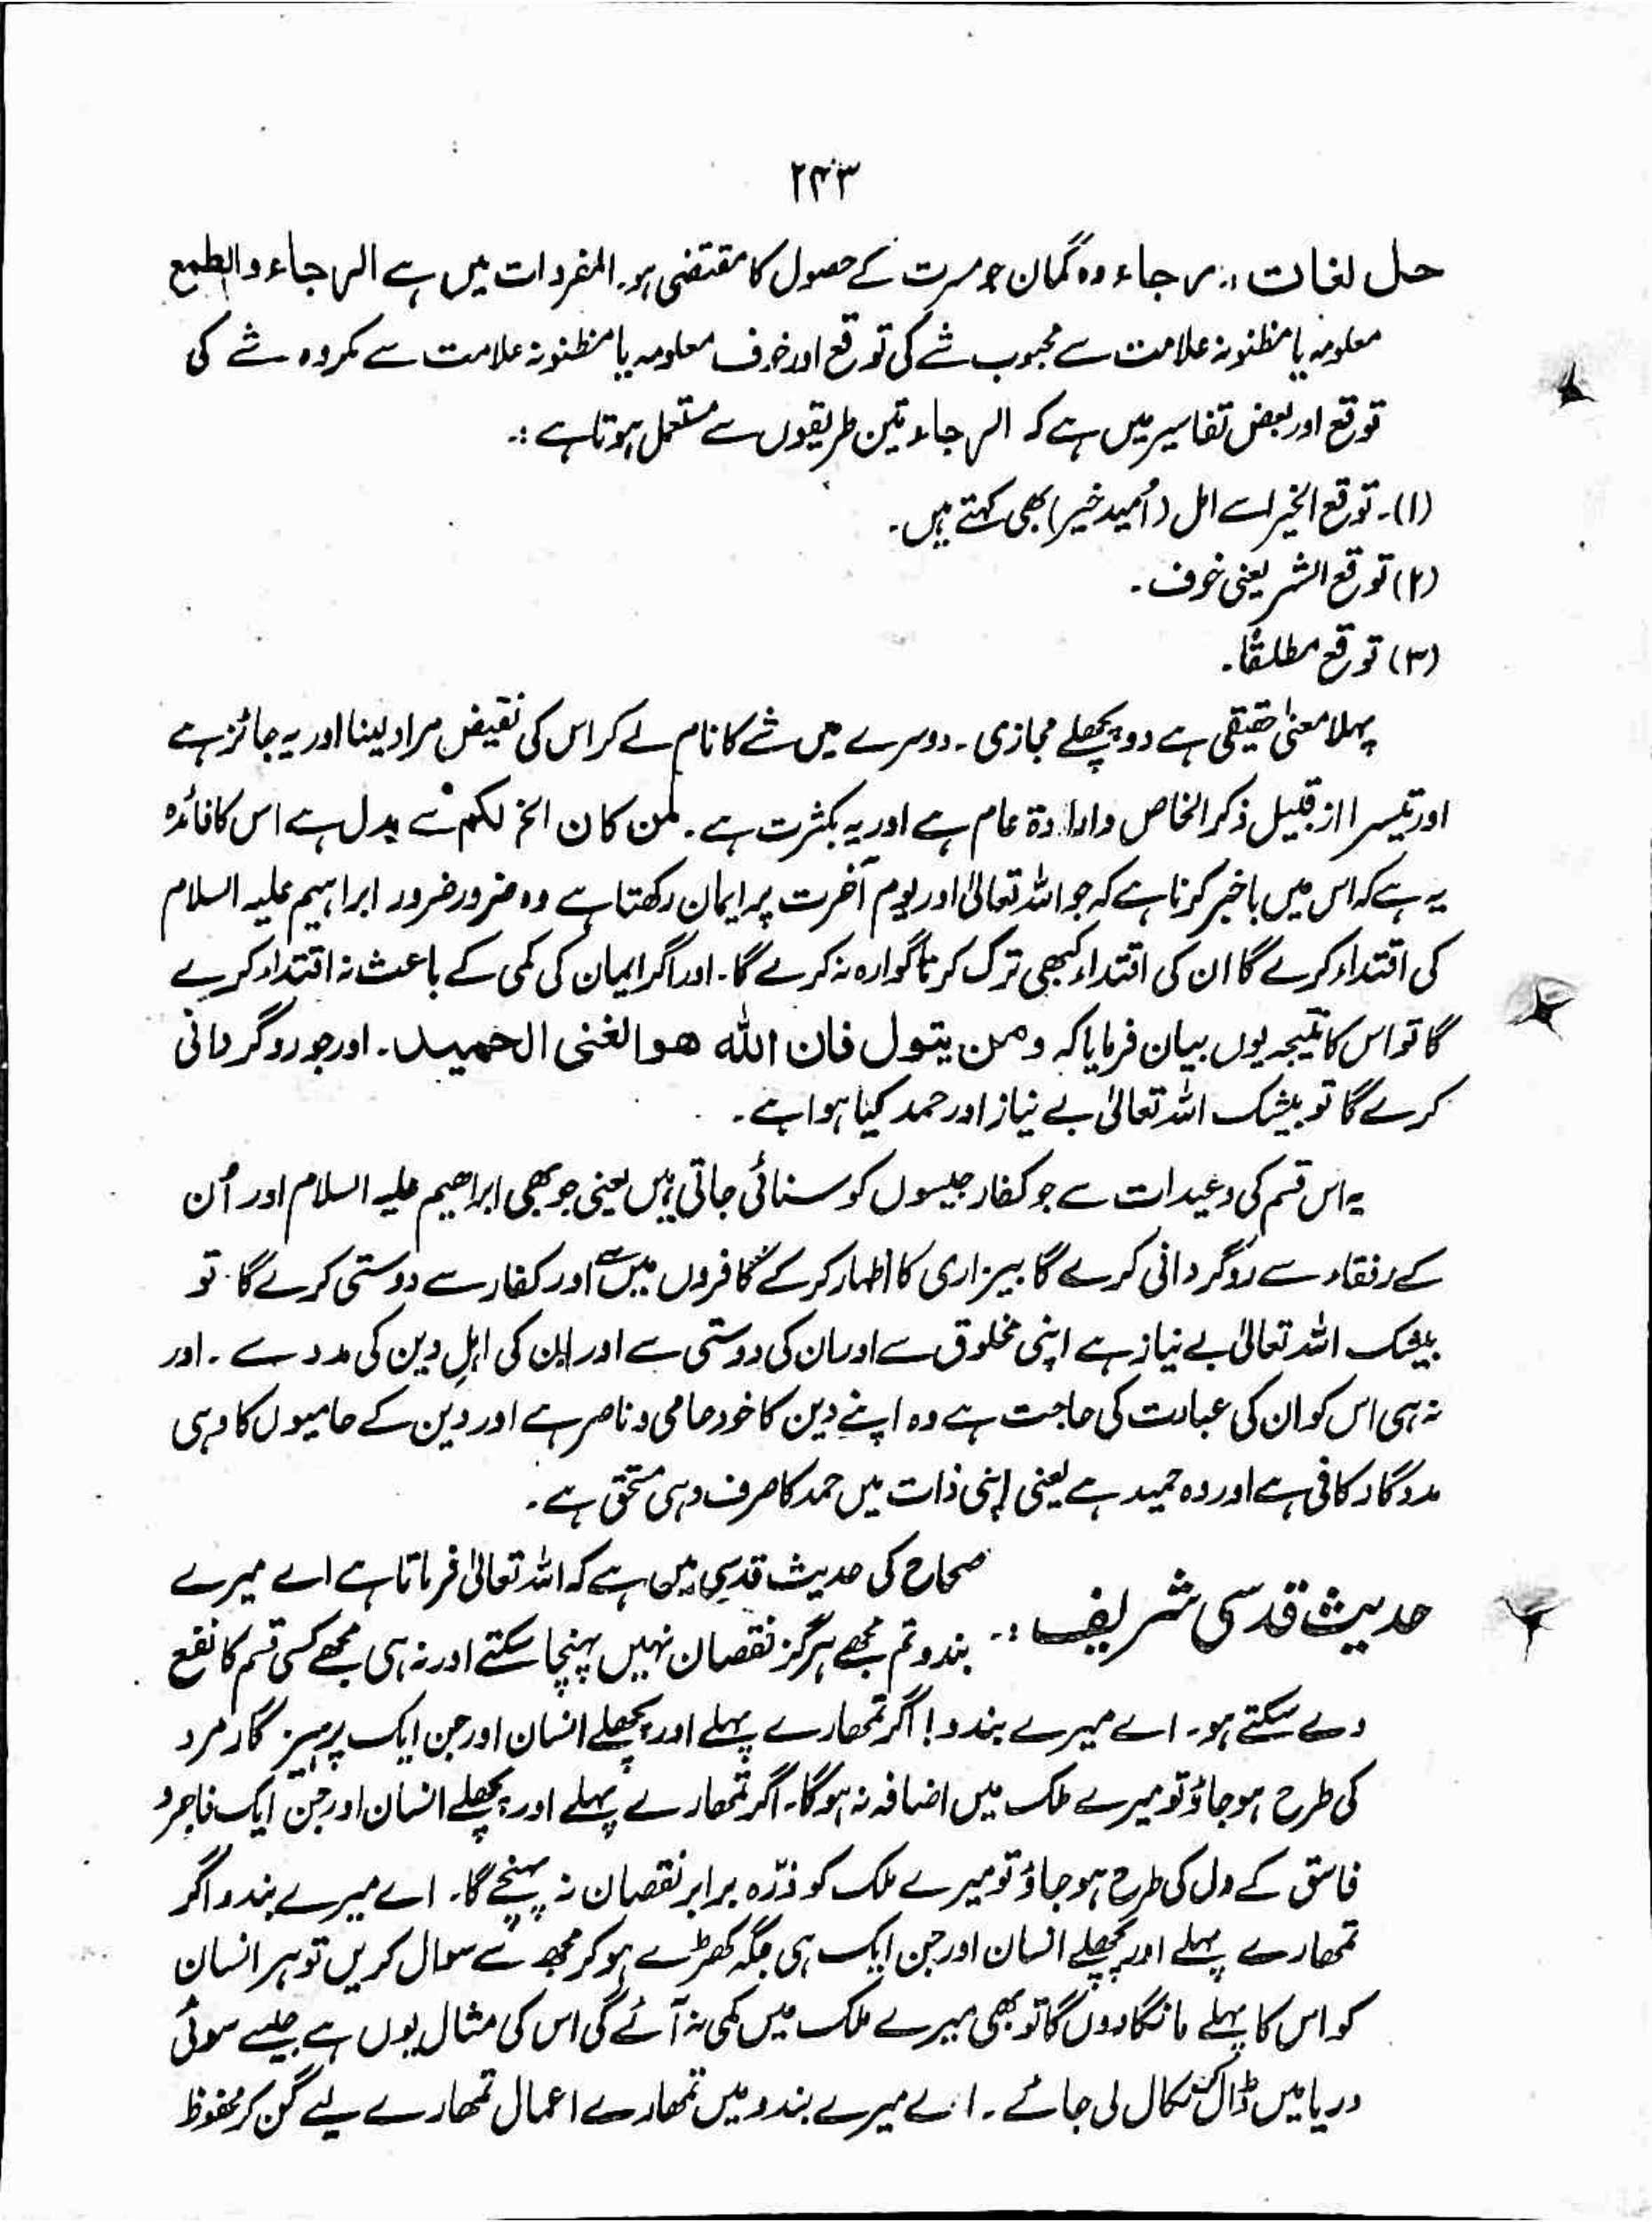 ۲۴۳
حل لغات :۔ رجاء وہ گمان جو مسرت کے حصول کا مقتضی ہو۔ المفردات میں ہے الرجاء والطمع
معلومہ یا مظنونہ علامت سے محبوب شے کی توقع اور خوف معلومہ یا مظنونہ علامت سے مکروہ شے کی
توقع اور بعض تفاسیر میں ہے کہ الرجاء تین طریقوں سے مستعمل ہوتا ہے :۔
(۱)۔ توقع الخیر اسے امل (اُمید خیر) بھی کہتے ہیں۔
(۲) توقع الشر یعنی خوف۔
(۳) توقع مطلقًا۔
پہلا معنیٰ حقیقی ہے دو پچھلے مجازی۔ دوسرے میں شے کا نام لے کر اس کی نقیض مراد لینا اور یہ جائز ہے
اور تیسرا از قبیل ذکر الخاص وارادۃ عام ہے اور یہ بکثرت ہے۔ لمن کان الخ لکم سے بدل ہے اس کا فائدہ
یہ ہے کہ اس میں باخبر کرنا ہے کہ جو اللہ تعالیٰ اور یوم آخرت پر ایمان رکھتا ہے وہ ضرور ضرور ابراہیم علیہ السلام
کی اقتداء کرے گا ان کی اقتداء کبھی ترک کرنا گوارہ نہ کرے گا۔ اور اگر ایمان کی کمی کے باعث نہ اقتداء کرے
گا تو اس کا نتیجہ یوں بیان فرمایا کہ ومن یتول فان اللہ ھو الغنی الحمید۔ اور جو روگردانی
کرے گا تو بیشک اللہ تعالیٰ بے نیاز اور حمد کیا ہوا ہے۔
یہ اس قسم کی وعیدات سے جو کفار جیسوں کو سنائی جاتی ہیں یعنی جو بھی ابراھیم علیہ السلام اور اُن
کے رفقاء سے روگردانی کرے گا بیزاری کا اظہار کر کے کافروں میں سے اور کفار سے دوستی کرے گا۔ تو
بیشک اللہ تعالیٰ بے نیاز ہے اپنی مخلوق سے اور ان کی دوستی سے اور ان کی اہلِ دین کی مدد سے۔ اور
نہ ہی اس کو ان کی عبادت کی حاجت ہے وہ اپنے دین کا خود حامی و ناصر ہے اور دین کے حامیوں کا وہی
مددگار کافی ہے اور وہ حمید ہے یعنی اپنی ذات میں حمد کا صرف وہی مستحق ہے۔
حدیث قدسی شریف :۔ صحاح کی حدیث قدسی میں ہے کہ اللہ تعالیٰ فرماتا ہے اے میرے
بندو تم مجھے ہرگز نقصان نہیں پہنچا سکتے اور نہ ہی مجھے کسی قسم کا نفع
دے سکتے ہو۔ اے میرے بندو! اگر تمھارے پہلے اور پچھلے انسان اور جن ایک پرہیز گار مرد
کی طرح ہو جاؤ تو میرے ملک میں اضافہ نہ ہوگا۔ اگر تمھارے پہلے اور پچھلے انسان اور جن ایک فاجر و
فاسق کے دل کی طرح ہو جاؤ تو میرے ملک کو ذرّہ برابر نقصان نہ پہنچے گا۔ اے میرے بندو اگر
تمھارے پہلے اور پچھلے انسان اور جن ایک ہی جگہ کھڑے ہو کر مجھ سے سوال کریں تو ہر انسان
کو اس کا پہلے مانگا دوں گا تو بھی میرے ملک میں کمی نہ آئے گی اس کی مثال یوں ہے جیسے سوئی
دریا میں ڈال کر نکال لی جائے۔ اے میرے بندو میں تمھارے اعمال تمھارے لیے گن کر محفوظ